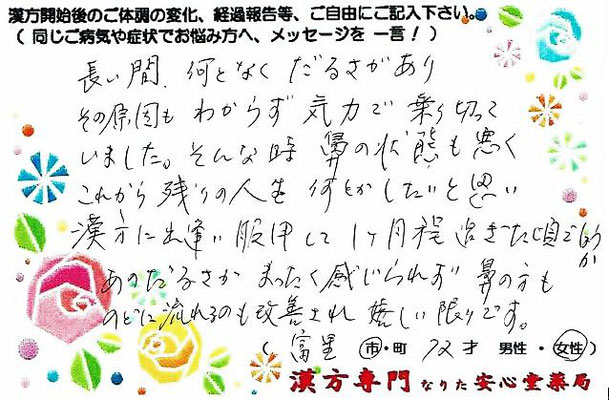 漢方開始後のご体調の変化、経過報告等、ご自由にご記入下さい。
（同じご病気や症状でお悩み方へ、メッセージを一言！）
長い間、何となくだるさがあり
その原因もわからず気力で乗り切って
いました。そんな時鼻の状態も悪く
これから残りの人生何とかしたいと思い
漢方に出逢い服用して1ヶ月程過ぎた頃でしょうか
あのだるさがまったく感じられず鼻の方も
のどに流れるのも改善され嬉しい限りです。
（富里 市・町 72才 男性・女性）
漢方専門なりた安心堂薬局